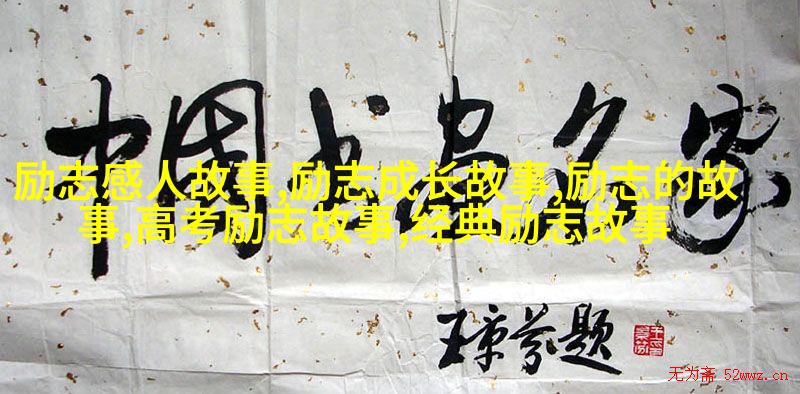 中国书画名家
励志感人故事,励志成长故事,励志的故
事,高考励志故事,经典励志故事
王京芬题
无为斋 52wwz.cn